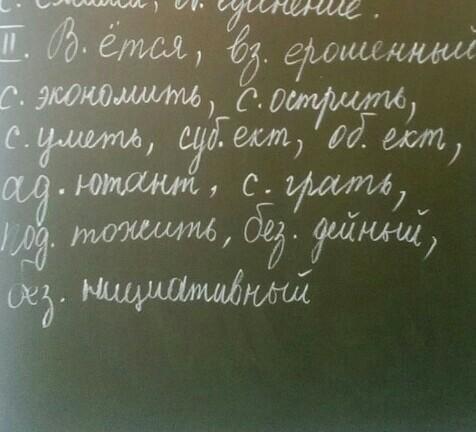 с. ёмка, п. единение.
II. В. ётся, вз. ерошенный
с. экономить, с. острить,
с. уметь, суб. ект, об. ект,
ад. ютант, с. грать,
под. тожить, без. дейный,
без. нициативный